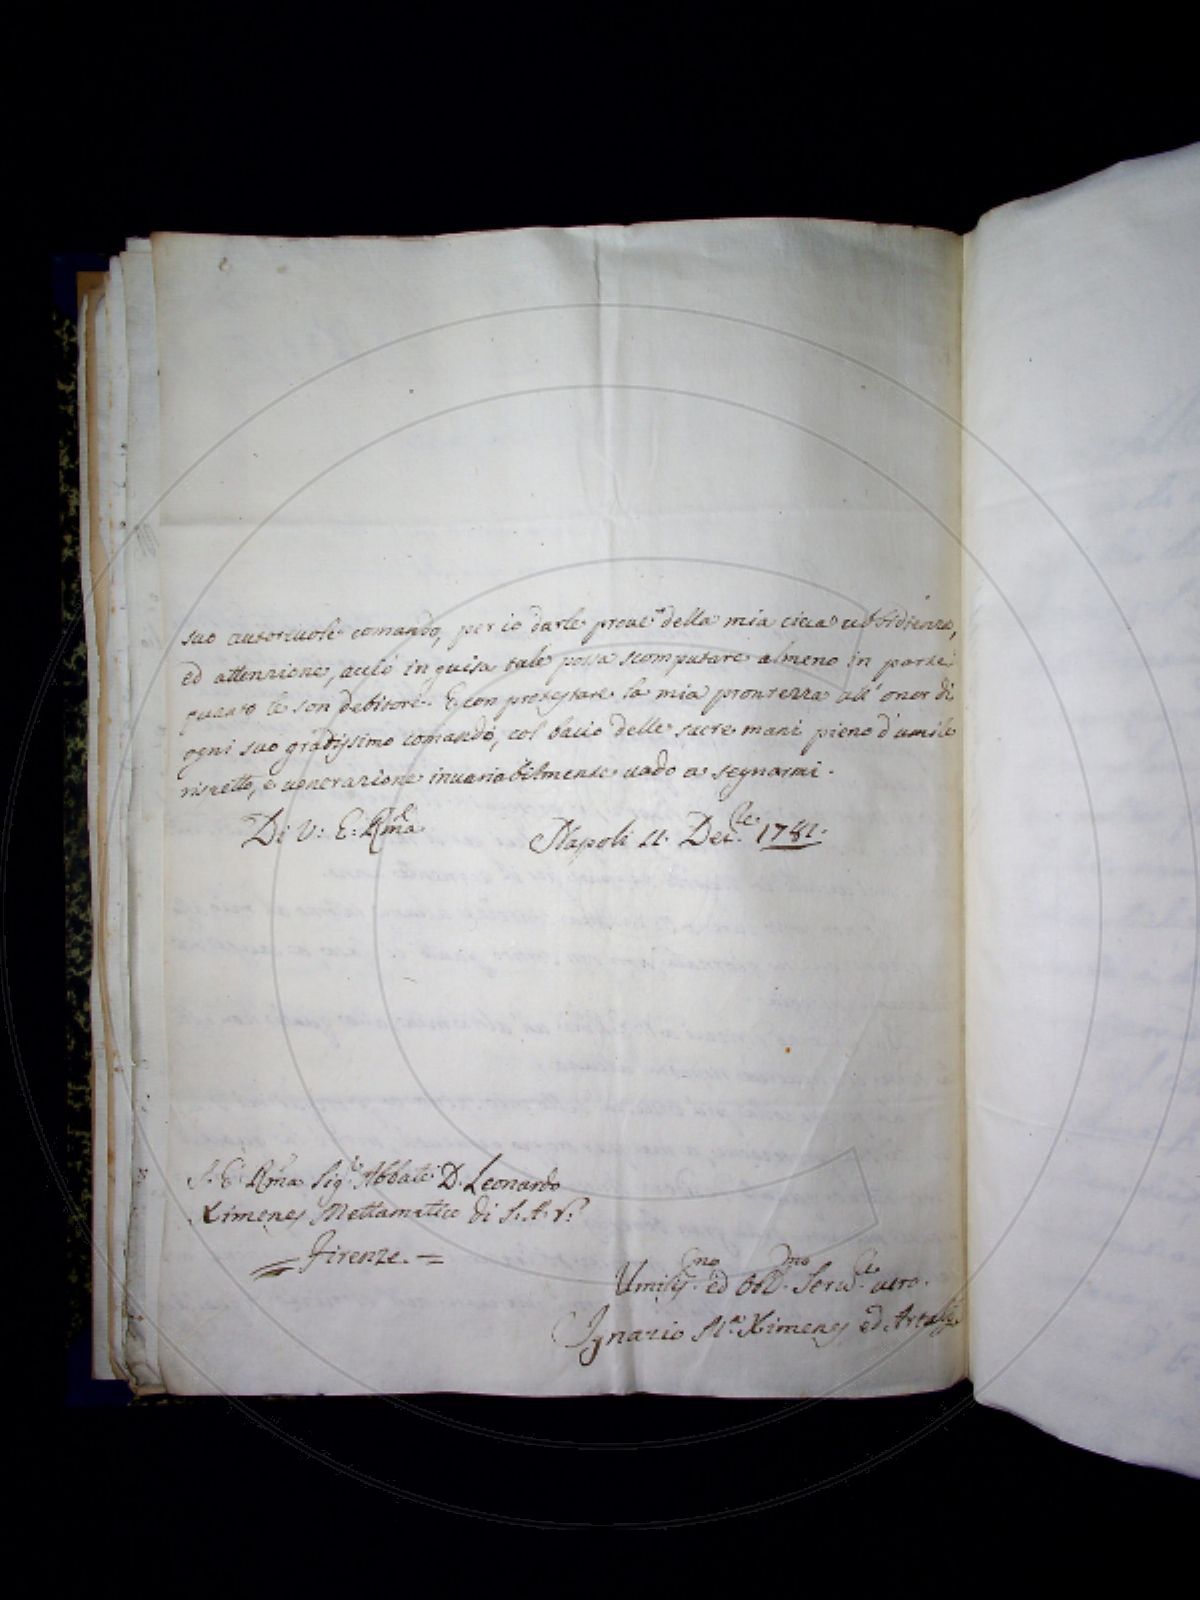 suo autorevole comando, per io darle prove della mia cieca ubbidienza,
ed attenzione, acciò in guisa tale possa scomputare almeno in parte
quanto le son debitore. E con protestare la mia prontezza all'onor di
ogni suo gradissimo comando, col bacio delle sacre mani pieno d'umile
rispetto, e venerazione invariabilmente vado a segnarmi.
Di V: E: Rma
Napoli 11. Dec.re 1781.
S. E. Rma Sig.r Abbate D. Leonardo
Ximenes Mattamatico di S. A. R.
Firenze.
Umiliss.mo ed Obl.mo Servid.re vero.
Ignazio Ma Ximenes ed